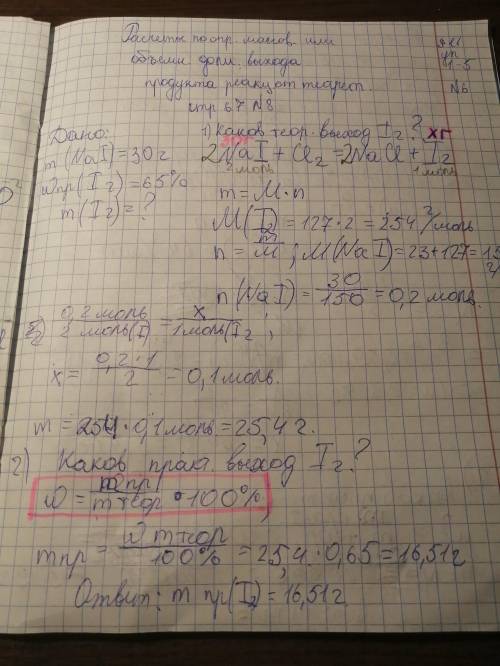 Расчеты по опр. массов. или
объемн. доли выхода
продукта реакции от теорет.
стр 67 №8
§§1
уп
1-5
№6
Дано:
m(NaI)=30г
ωпр(I2)=65%
m(I2)=?
1) Каков теор. выход I2?
30г хг
2NaI+Cl2=2NaCl+I2
2моль 1моль
m=M·n
M(I2)=127·2=254 г/моль
n=m/M; M(NaI)=23+127=15
n(NaI)=30/150=0,2моль.
0,2моль/2моль(I)=x/1моль(I2;
x=0,2·1/2=0,1моль.
m=254·0,1моль=25,4г.
2) Каков прак. выход I2?
ω=mпр/mтеор·100%
mпр=ω mтеор/100%=25,4·0,65=16,51г
Ответ: m пр(I2)=16,51г